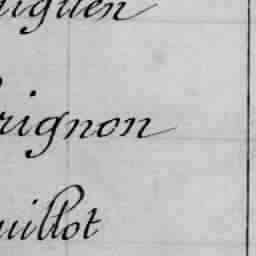 iguen
rignon
uillot